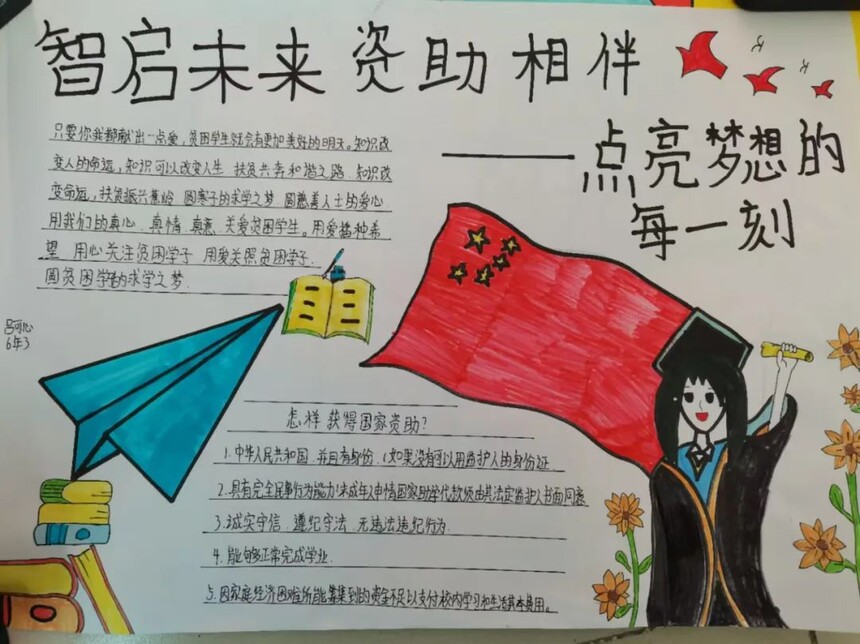 智启未来 资助相伴
——点亮梦想的
每一刻
只要你我都献出一点爱,贫困学生就会有更加美好的明天。知识改
变人的命运,知识可以改变人生 扶贫共奔和谐之路 知识改
变命运,扶贫振兴蕉岭 圆寒子的求学之梦 圆慈善人士的爱心
用我们的真心 真情 真意 关爱贫困学生。用爱播种希
望 用心关注贫困学子 用爱关照贫困学子
圆贫困学子的求学之梦
吕可心
6年3
怎样获得国家资助?
1.中华人民共和国 并且有身份 (如果没有可以用监护人的身份证
2.具有完全民事行为能力(未成年)申情国家助学代款须由其法定监护人书面同意
3.诚实守信 遵纪守法 无违法违纪行为
4.能够正常完成学业
5.因家庭经济困难所能筹集到的资金不足以支付校内学习和生活基本费用。